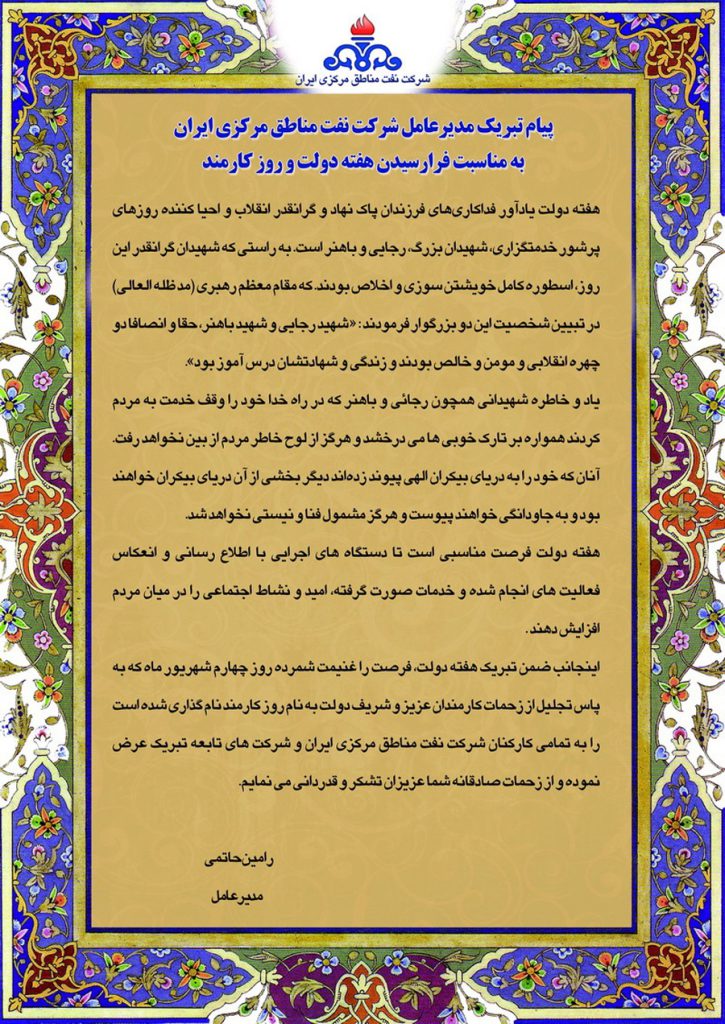 شرکت نفت مناطق مرکزی ایران
پیام تبریک مدیرعامل شرکت نفت مناطق مرکزی ایران
به مناسبت فرارسیدن هفته دولت و روز کارمند
هفته دولت یادآور فداکاری‌های فرزندان پاک نهاد و گرانقدر انقلاب و احیا کننده روزهای
پرشور خدمتگزاری، شهیدان بزرگ، رجایی و باهنر است. به راستی که شهیدان گرانقدر این
روز، اسطوره کامل خویشتن سوزی و اخلاص بودند. که مقام معظم رهبری (مد ظله العالی)
در تبیین شخصیت این دو بزرگوار فرمودند: «شهید رجایی و شهید باهنر، حقا و انصافا دو
چهره انقلابی و مومن و خالص بودند و زندگی و شهادتشان درس آموز بود».
یاد و خاطره شهیدانی همچون رجائی و باهنر که در راه خدا خود را وقف خدمت به مردم
کردند همواره بر تارک خوبی ها می درخشد و هرگز از لوح خاطر مردم از بین نخواهد رفت.
آنان که خود را به دریای بیکران الهی پیوند زده‌اند دیگر بخشی از آن دریای بیکران خواهند
بود و به جاودانگی خواهند پیوست و هرگز مشمول فنا و نیستی نخواهد شد.
هفته دولت فرصت مناسبی است تا دستگاه های اجرایی با اطلاع رسانی و انعکاس
فعالیت های انجام شده و خدمات صورت گرفته، امید و نشاط اجتماعی را در میان مردم
افزایش دهند.
اینجانب ضمن تبریک هفته دولت، فرصت را غنیمت شمرده روز چهارم شهریور ماه که به
پاس تجلیل از زحمات کارمندان عزیز و شریف دولت به نام روز کارمند نام گذاری شده است
را به تمامی کارکنان شرکت نفت مناطق مرکزی ایران و شرکت های تابعه تبریک عرض
نموده و از زحمات صادقانه شما عزیزان تشکر و قدردانی می نمایم.
رامین حاتمی
مدیرعامل